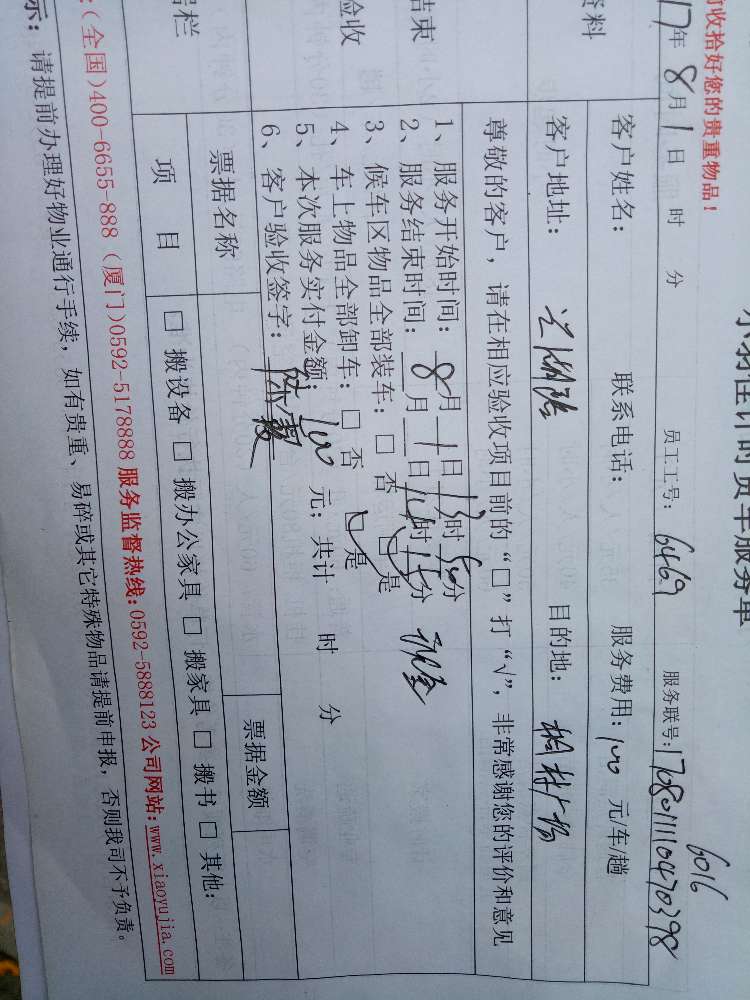 前收拾好您的贵重物品！
小羽佳计时货车服务单
17年8月1日 时 分 员工工号: 6469 服务联号: 1708011110470398
6016
资料
客户姓名: 联系电话: 服务费用: 100 元/车/趟
客户地址: 目的地:
尊敬的客户，请在相应验收项目前的“□”打“√”，非常感谢您的评价和意见
结束
验收
1、服务开始时间: 8月1日13时50分
2、服务结束时间: 月 日14时15分 现金
3、候车区物品全部装车: □ 否 □ 是
4、车上物品全部卸车: □ 否 □ 是
5、本次服务实付金额: 100 元; 共计 时 分
6、客户验收签字:
票据名称 票据金额
项 目 □ 搬设备 □ 搬办公家具 □ 搬家具 □ 搬书 □ 其他:
(全国)400-6655-888 (厦门)0592-5178888 服务监督热线:0592-5888123 公司网站:www.xiaoyujia.com
示: 请提前办理好物业通行手续，如有贵重、易碎或其它特殊物品请提前申报，否则我司不予负责。